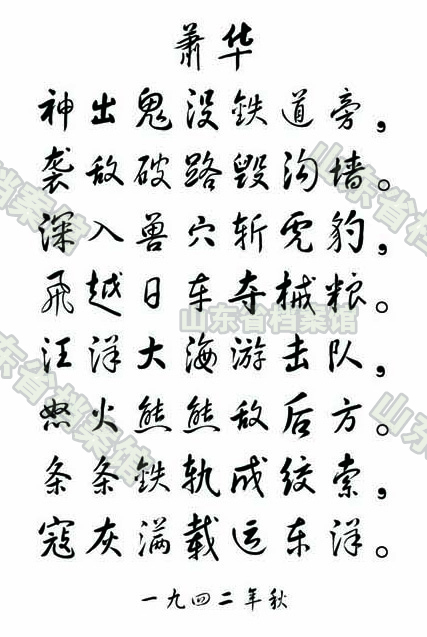 萧华
神出鬼没鉄道旁，
袭敌破路毁沟墙。
深入兽穴斩虎豹，
飛越日车夺械粮。
汪洋大海游击队，
怒火熊熊敌后方。
条条鉄轨成绞索，
寇灰满载运东洋。
一九四二年秋
山东省档案馆
山东省档案馆
山东省档案馆
山东省档案馆